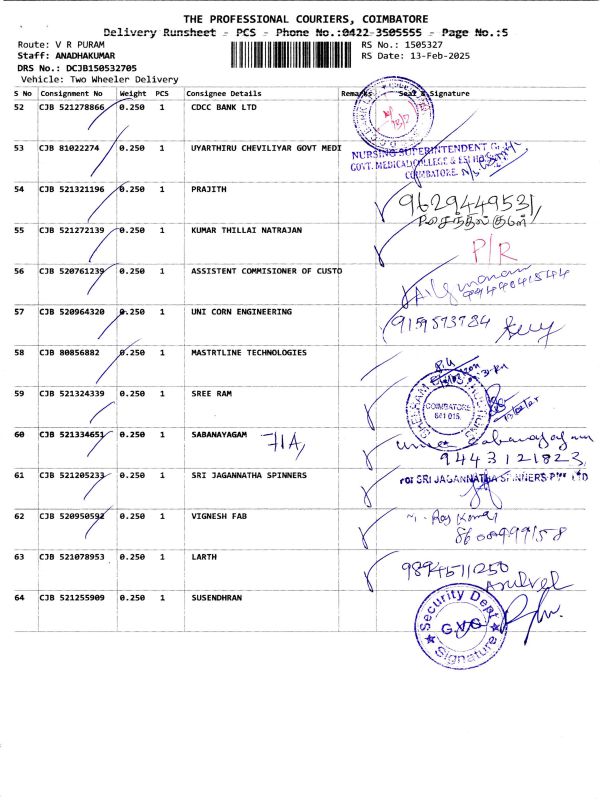 THE PROFESSIONAL COURIERS, COIMBATORE
Delivery Runsheet - PCS - Phone No.:0422-3505555 - Page No.:5
Route: V R PURAM RS No.: 1505327
Staff: ANADHAKUMAR RS Date: 13-Feb-2025
DRS No.: DCJB150532705
Vehicle: Two Wheeler Delivery
S No Consignment No Weight PCS Consignee Details Remarks Seal & Signature
52 CJB 521278866 0.250 1 CDCC BANK LTD
53 CJB 81022274 0.250 1 UYARTHIRU CHEVILIYAR GOVT MEDI
NURSING SUPERINTENDENT
GOVT. MEDICAL COLLEGE & ESI
COIMBATORE.
54 CJB 521321196 0.250 1 PRAJITH
9629449531
55 CJB 521272139 0.250 1 KUMAR THILLAI NATRAJAN
P/R
56 CJB 520761239 0.250 1 ASSISTENT COMMISIONER OF CUSTO
57 CJB 520964320 0.250 1 UNI CORN ENGINEERING
9159573784
58 CJB 80856882 0.250 1 MASTRTLINE TECHNOLOGIES
59 CJB 521324339 0.250 1 SREE RAM
COIMBATORE
641 015.
60 CJB 521334651 0.250 1 SABANAYAGAM 71A,
Sabanayagam
9443121823
61 CJB 521205233 0.250 1 SRI JAGANNATHA SPINNERS
For SRI JAGANNATHA SPINNERS PVT LTD
62 CJB 520950592 0.250 1 VIGNESH FAB
Raj Kumar
63 CJB 521078953 0.250 1 LARTH
9894511250
64 CJB 521255909 0.250 1 SUSENDHRAN
Security Dept
GVG
Signature